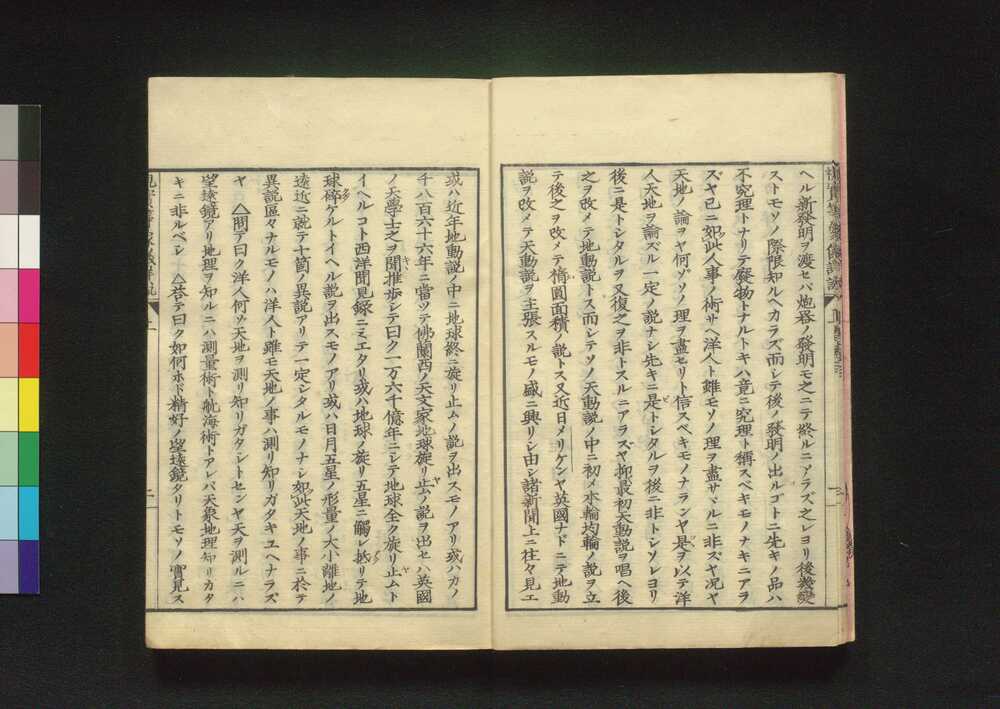 ヘル新發明ヲ渡セバ炮器ノ發明モ之ニテ終ルニアラズ之レヨリ後幾變
ストモソノ際限知ルヘカラズ而シテ後ノ發明ノ出ルゴトニ先キノ品ハ
不究理トナリテ廢物トナルトキハ竟ニ究理ト稱スベキモノナキニアラ
ズヤ已ニ如此人事ノ術サヘ洋人ト雖モソノ理ヲ盡サヾルニ非ズヤ况ヤ
天地ノ論ヲヤ何ゾソノ理ヲ盡セリト信スベキモノナランヤ是ヲ以テ洋
人天地ヲ論ズル一定ノ説ナシ先キニ是トシタルヲ後ニ非トシソレヨリ
後ニ是トシタルヲ又復之ヲ非トスルニアラズヤ抑最初天動説ヲ唱ヘ後
之ヲ改メテ地動説トス而シテソノ天動説ノ中ニ初メ本輪均輪ノ説ヲ立
テ後之ヲ改メテ楕圓面積ノ説トス又近日メリケンヤ英國ナドニテ地動
説ヲ改メテ天動説ヲ主張スルモノ盛ニ興リシ由シ諸新聞上ニ往々見エ
或ハ近年地動説ノ中ニ地球終ニ旋リ止ムノ説ヲ出スモノアリ或ハカノ
千八百六十六年ニ當ツテ佛蘭西ノ天文家地球旋リ止ムノ説ヲ出セハ英國
ノ天學士之ヲ聞推歩シテ曰ク一万六千億年ニシテ地球全ク旋リ止ムト
イヘルコト西洋聞見録ニミエタリ或ハ地球ノ旋リ五星ニ觸レ抵リテ地
球碎ケルトイヘル説ヲ出スモノアリ或ハ日月五星ノ形量ノ大小離地ノ
遠近ニ就テ十箇ノ異説アリテ一定シタルモノナシ如此天地ノ事ニ於テ
異説區々ナルモノハ洋人ト雖モ天地ノ事ハ測リ知リガタキユヘナラズ
ヤ △問テ曰ク洋人何ゾ天地ヲ測リ知リガタシトセンヤ天ヲ測ルニハ
望遠鏡アリ地理ヲ知ルニハ測量術ト航海術トアレバ天象地理知リカタ
キニ非ルベシ △荅テ曰ク如何ホド精好ノ望遠鏡タリトモソノ實見ス